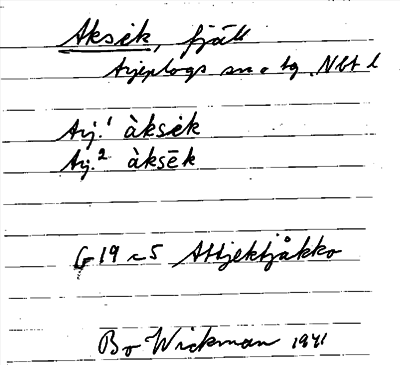 Aksek, fjäll
Arjeplogs sn o tg. Nbt l
Arj.¹ àksek
Arj.² àksēk
G 19 c 5 Attjektjåkko
Bo Wickman 1941